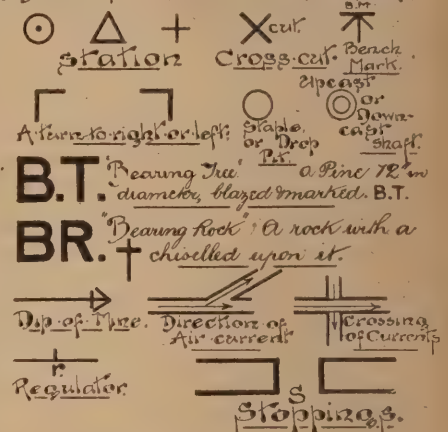 B.M.
cut.
Station Cross-cut. Bench Mark.
Upcast
or Down-cast Shaft.
A turn to right or left. Staple or Drop Pit.
B.T. "Bearing Tree" a Pine 12" in
diameter, blazed & marked. B.T.
BR. "Bearing Rock" A rock with a
chiselled upon it.
Dip of Mine. Direction of Air current Crossing of Currents
r
Regulator.
S
Stoppings.